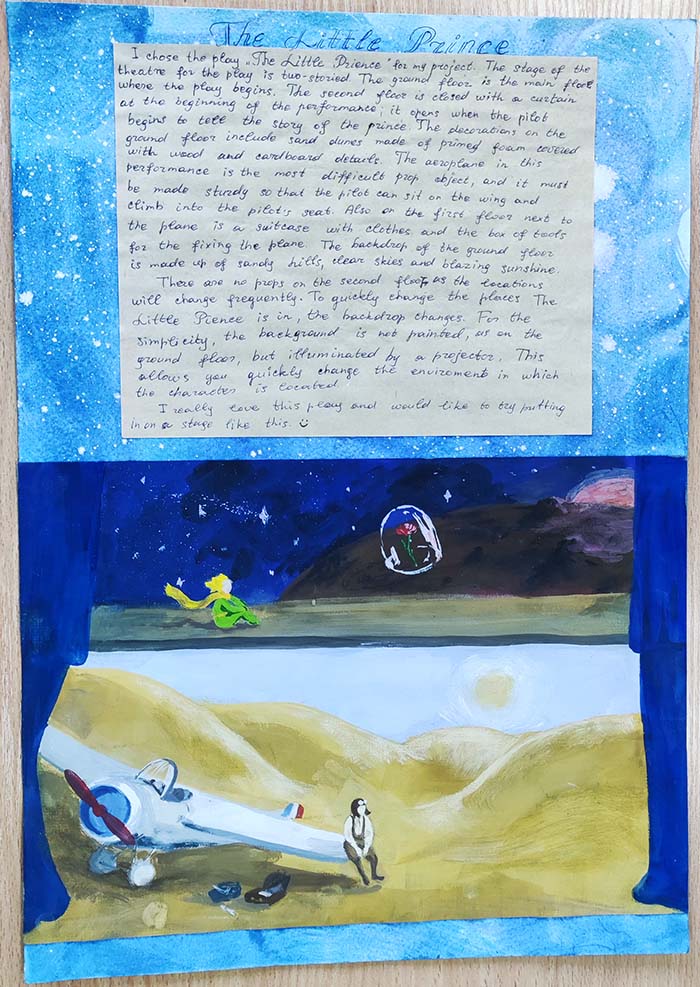 The Little Prince
I chose the play „The Little Prience" for my project. The stage of the
theatre for the play is two-storied. The ground floor is the main floor
where the play begins. The second floor is closed with a curtain
at the beginning of the performance, it opens when the pilot
begins to tell the story of the prince. The decorations on the
ground floor include sand dunes made of primed foam covered
with wood and cardboard details. The aeroplane in this
performance is the most difficult prop object, and it must
be made sturdy so that the pilot can sit on the wing and
climb into the pilot's seat. Also on the first floor next to
the plane is a suitcase with clothes and the box of tools
for the fixing the plane. The backdrop of the ground floor
is made up of sandy hills, clear skies and blazing sunshine.
There are no props on the second floor, as the locations
will change frequently. To quickly change the places The
Little Pience is in, the backdrop changes. For the
simplicity, the background is not painted, as on the
ground floor, but illuminated by a projector. This
allows you quickly change the enviroment in which
the character is located.
I really love this play and would like to try putting
in on a stage like this. ☺